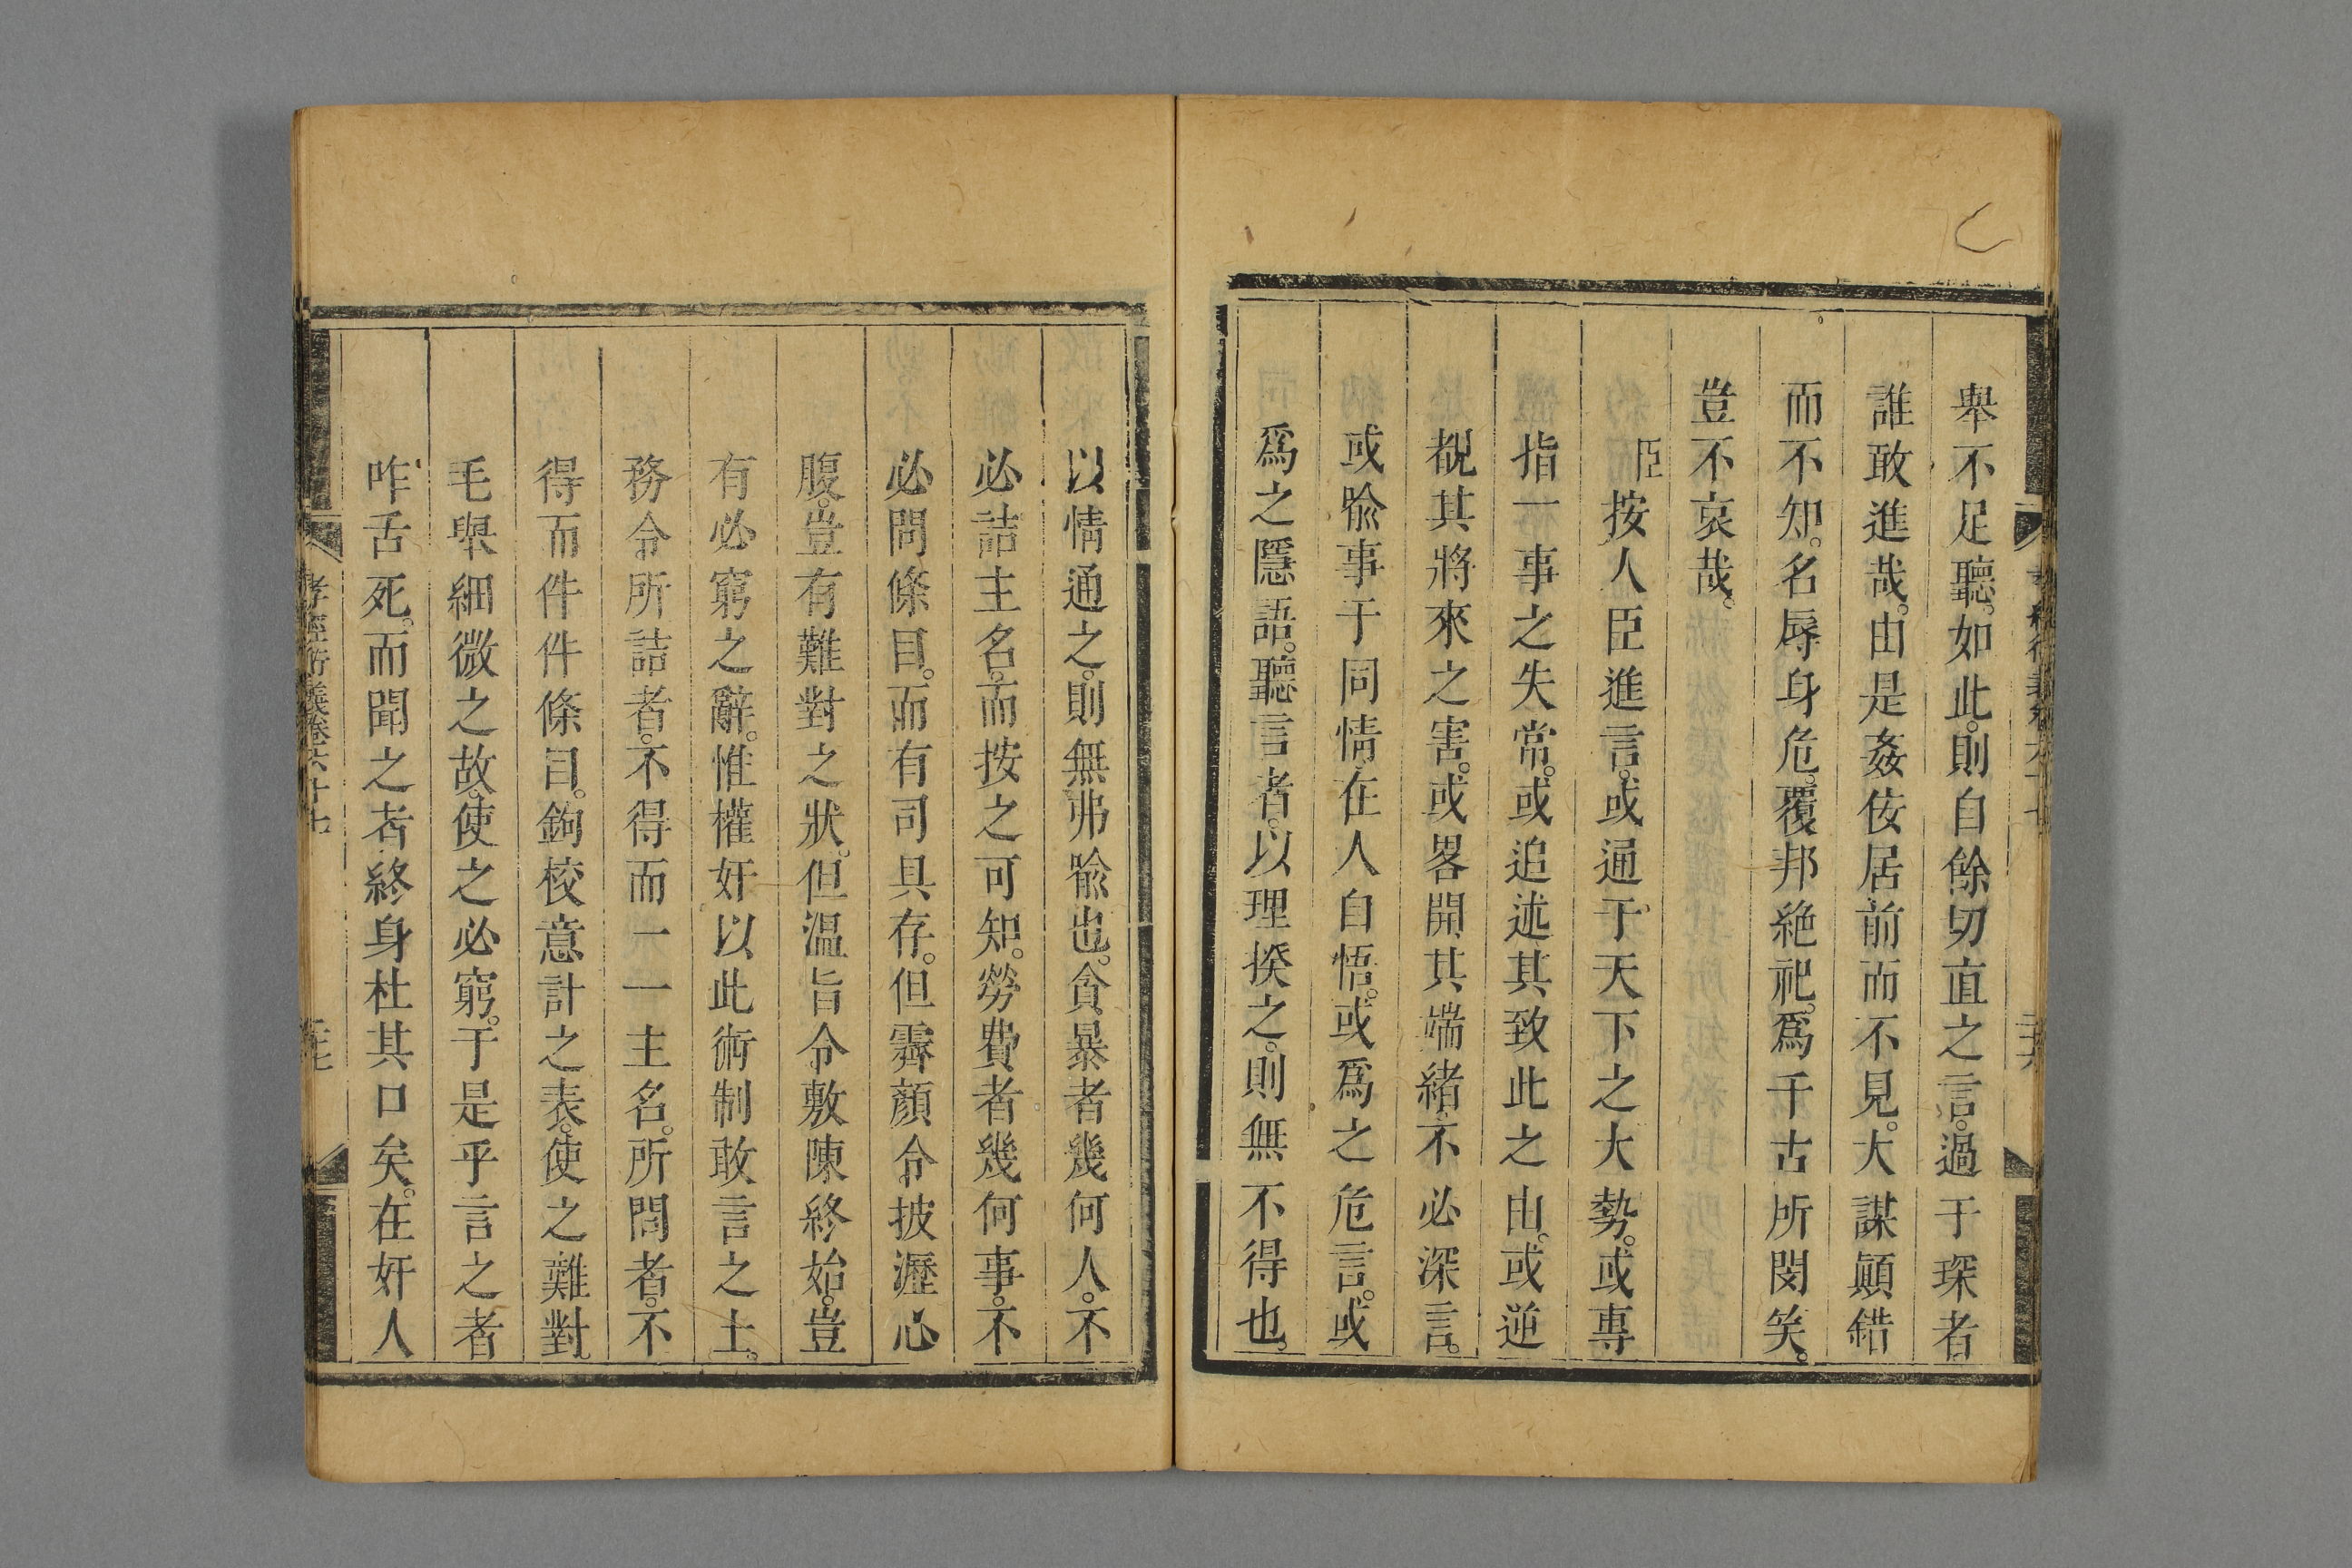 舉不足聽。如此。則自餘切直之言。過于琛者
誰敢進哉。由是姦佞居前而不見。大謀顚錯
而不知。名辱身危。覆邦絶祀。爲千古所閔笑。
豈不哀哉。
臣按人臣進言。或通于天下之大勢。或專
指一事之失常。或追述其致此之由。或逆
覩其將來之害。或畧開其端緒。不必深言。
或喩事于同情。在人自悟。或爲之危言。或
爲之隱語。聽言者。以理揆之。則無不得也。
以情通之。則無弗喩也。貪暴者幾何人。不
必詰主名。而按之可知。勞費者幾何事。不
必問條目。而有司具存。但霽顏令披瀝心
腹。豈有難對之狀。但溫旨令敷陳終始。豈
有必窮之辭。惟權奸以此術制敢言之士。
務令所詰者。不得而一一主名。所問者。不
得而件件條目。鉤校意計之表。使之難對。
毛舉細微之故。使之必窮。于是乎言之者
咋舌死。而聞之者終身杜其口矣。在奸人
孝經衍義卷六十七